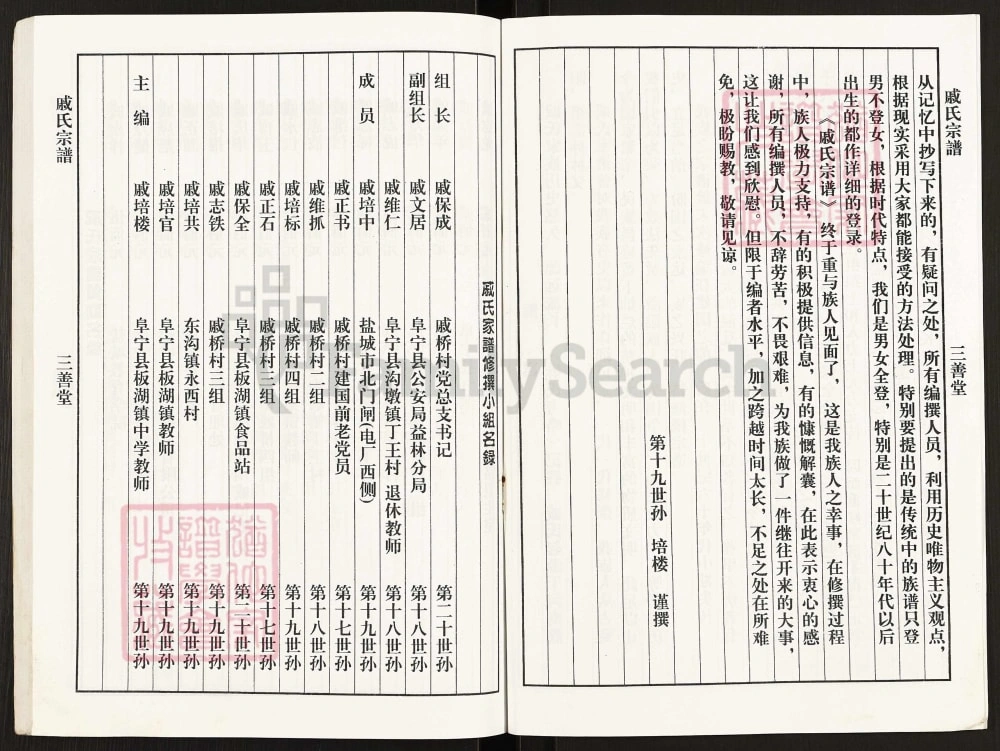 戚氏宗譜
三善堂
从记忆中抄写下来的，有疑问之处，所有编撰人员，利用历史唯物主义观点，
根据现实采用大家都能接受的方法处理。特别要提出的是传统中的族谱只登
男不登女，根据时代特点，我们是男女全登，特别是二十世纪八十年代以后
出生的都作详细的登录。
《戚氏宗谱》终于重与族人见面了，这是我族人之幸事，在修撰过程
中，族人极力支持，有的积极提供信息，有的慷慨解囊，在此表示衷心的感
谢，所有编撰人员，不辞劳苦，不畏艰难，为我族做了一件继往开来的大事，
这让我们感到欣慰。但限于编者水平，加之跨越时间太长，不足之处在所难
免，极盼赐教，敬请见谅。
第十九世孙 培楼 谨撰
戚氏家譜修撰小組名録
组长 戚保成 戚桥村党总支书记 第二十世孙
副组长 戚文居 阜宁县公安局益林分局 第十八世孙
戚维仁 阜宁县沟墩镇丁王村 退休教师 第十八世孙
成员 戚培中 盐城市北门闸(电厂西侧) 第十九世孙
戚正书 戚桥村建国前老党员 第十七世孙
戚维抓 戚桥村二组 第十八世孙
戚培标 戚桥村四组 第十九世孙
戚正石 戚桥村三组 第十七世孙
戚保全 阜宁县板湖镇食品站 第二十世孙
戚志铁 戚桥村三组 第十九世孙
戚培共 东沟镇永西村 第十九世孙
戚培官 阜宁县板湖镇教师 第十九世孙
主编 戚培楼 阜宁县板湖镇中学教师 第十九世孙
戚氏宗譜
三善堂
FamilySearch